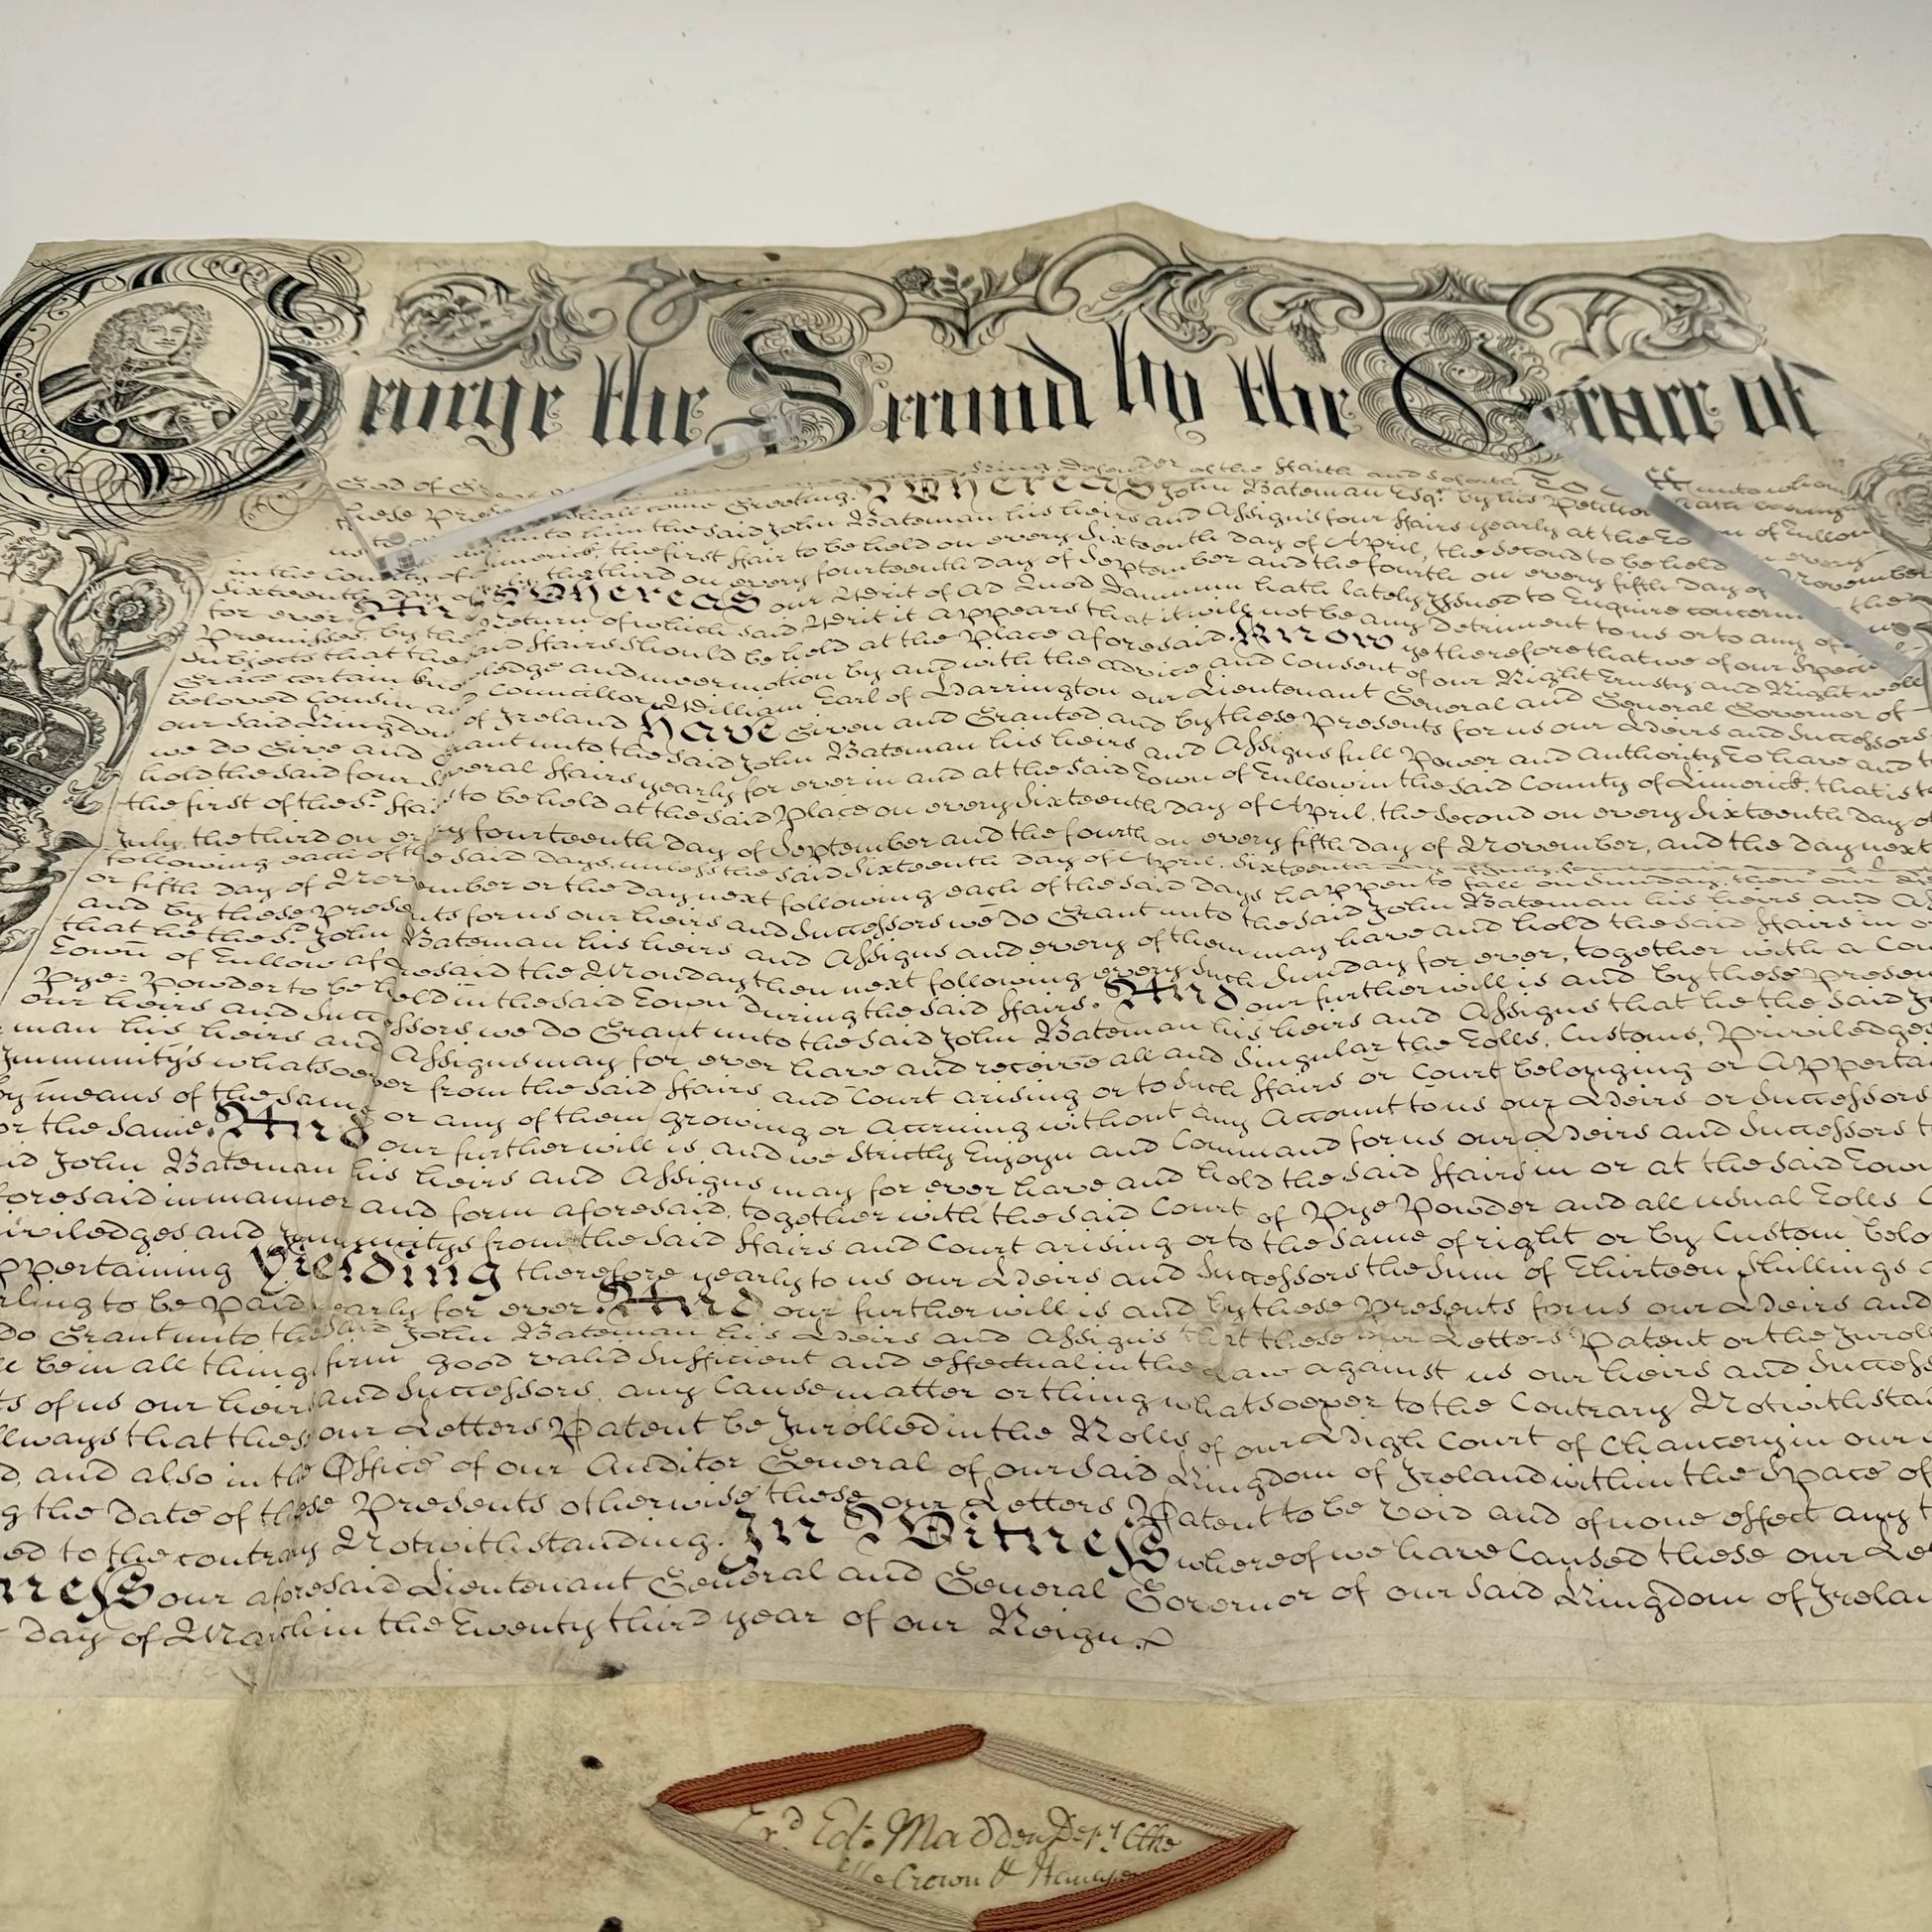 George the Second by the Grace of
God of defender of the ffaith and so forth To all unto whom
these shall come Greeting. Whereas John Bateman Esqr. by his Petition hath
unto him the said John Bateman his heirs and Assigns four ffairs yearly at the Town of Tullow
in the County of Limerick, the first ffair to be held on every Sixteenth day of April, the second to be held every
Sixteenth day of the third on every fourteenth day of September and the fourth on every fifth day of November
for ever And Whereas our Writ of Ad Quod Damnum hath lately Issued to Enquire concerning the
Premisses, by the return of which said Writ it appears that it will not be any detriment to us or to any of
Subjects that the said ffairs should be held at the Place aforesaid. Know ye therefore that we of our Special
Grace certain knowledge and meer motion by and with the advice and Consent of our Right Trusty and Right well
beloved Cousin and Councillor William Earl of Harrington our Lieutenant General and General Governor of
our said Kingdom of Ireland Have Given and Granted and by these Presents for us our Heirs and Successors
we do Give and Grant unto the said John Bateman his heirs and Assigns full Power and Authority To have and to
hold the said four Several ffairs yearly for ever in and at the said Town of Tullow in the said County of Limerick, that is to
the first of the sd. ffairs to be held at the said Place on every Sixteenth day of April, the second on every Sixteenth day of
July, the third on every fourteenth day of September and the fourth on every fifth day of November, and the day next
following each of the said days, unless the said Sixteenth day of April, Sixteenth day of July, fourteenth
or fifth day of November or the day next following each of the said days happen to fall on Sunday, then our
and by these Presents for us our heirs and Successors we do Grant unto the said John Bateman his heirs and
that he the sd. John Bateman his heirs and Assigns and every of them may have and hold the said ffairs in
Town of Tullow aforesaid the Monday then next following every such Sunday for ever, together with a
Pye-Powder to be held in the said Town During the said ffairs. And our further will is and by these presents
our heirs and Successors we do Grant unto the said John Bateman his heirs and Assigns that he the said
man his heirs and Assigns may for ever have and receive all and Singular the Tolls, Customs, Priviledges
Immunitys whatsoever from the said ffairs and Court arising or to such ffairs or Court belonging or
by means of the same or any of them growing or Accruing without any Account to us our Heirs or Successors
or the same. And our further will is and we Strictly Enjoyn and Command for us our Heirs and Successors
id John Bateman his heirs and Assigns may for ever have and hold the said ffairs in or at the said Town
foresaid in manner and form aforesaid, together with the said Court of Pye Powder and all usual Tolls
iviledges and Immunitys from the said ffairs and Court arising or to the same of right or by Custom
ppertaining Yielding therefore yearly to us our Heirs and Successors the Sum of Thirteen Shillings
rling to be Paid yearly for ever. And our further will is and by these Presents for us our Heirs and
do Grant unto the said John Bateman his Heirs and Assigns that these our Letters Patent or the
l be in all things firm good valid Sufficient and effectual in the Law against us our heirs and
ts of us our heirs and Successors, any Cause matter or thing whatsoever to the Contrary
llways that these our Letters Patent be Inrolled in the Rolls of our High Court of Chancery in our
d, and also in the Office of our Auditor General of our said Kingdom of Ireland within the Space of
g the Date of these Presents otherwise these our Letters Patent to be Void and of none effect any
ed to the contrary Notwithstanding. In Witness whereof we have Caused these our
ness our aforesaid Lieutenant General and General Governor of our said Kingdom of
day of March in the Twenty third year of our Reign.
Exd. Ed: Madden Depy. Clke
Crown &